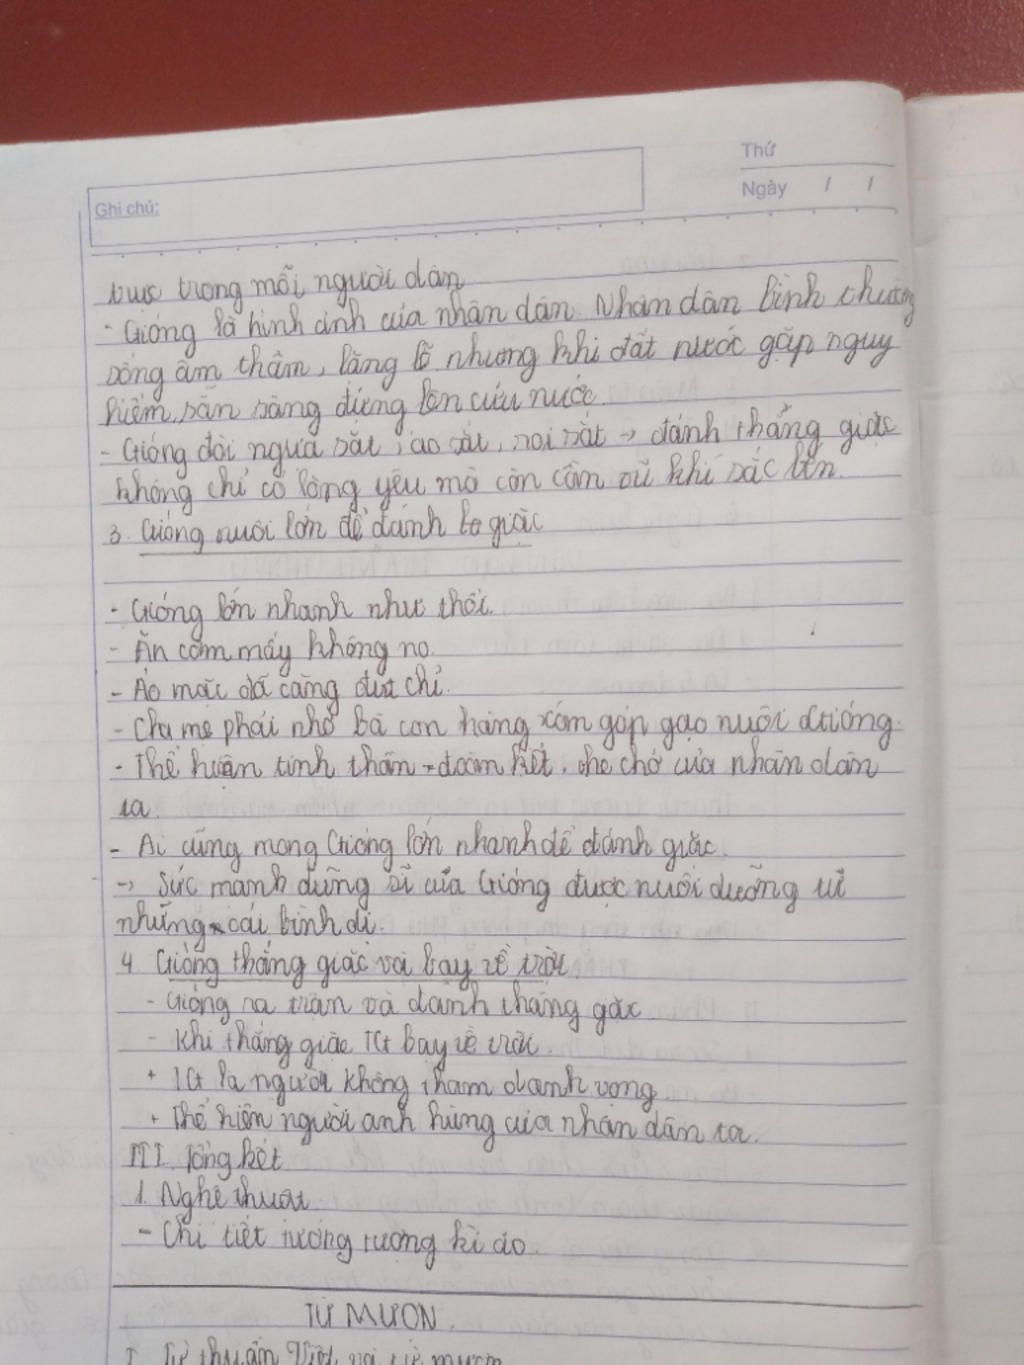 Thứ
Ngày / /
Ghi chú:
trực trong mỗi người dân
- Gióng là hình ảnh của nhân dân. Nhân dân bình thường
sống âm thầm, lặng lẽ nhưng khi đất nước gặp nguy
hiểm, sẵn sàng đứng lên cứu nước.
- Gióng đòi ngựa sắt, áo sắt, roi sắt → đánh thắng giặc
không chỉ có lòng yêu mà còn cần vũ khí sắc bén.
3. Gióng nuôi lớn để đánh giặc
- Gióng lớn nhanh như thổi.
- Ăn cơm mấy không no.
- Áo mặc đã căng đứt chỉ.
- Cha mẹ phải nhờ bà con hàng xóm góp gạo nuôi Gióng.
- Thể hiện tinh thần đoàn kết, che chở của nhân dân
ta.
- Ai cũng mong Gióng lớn nhanh để đánh giặc.
→ Sức mạnh dũng sĩ của Gióng được nuôi dưỡng từ
những cái bình dị.
4. Gióng thắng giặc và bay về trời.
- Gióng ra trận và đánh thắng gặc
- Khi thắng giặc TG bay về trời.
+ TG là người không tham danh vọng
+ Thể hiện người anh hùng của nhân dân ta.
III. Tổng kết
1. Nghệ thuật
- Chi tiết tưởng tượng kì ảo.
TỪ MƯỢN.
I. Từ thuần Việt và từ mượn